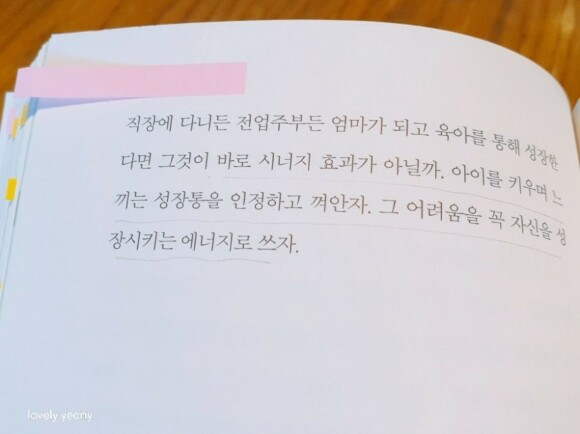 직장에 다니든 전업주부든 엄마가 되고 육아를 통해 성장한
다면 그것이 바로 시너지 효과가 아닐까. 아이를 키우며 느
끼는 성장통을 인정하고 껴안자. 그 어려움을 꼭 자신을 성
장시키는 에너지로 쓰자.
lovely yeony